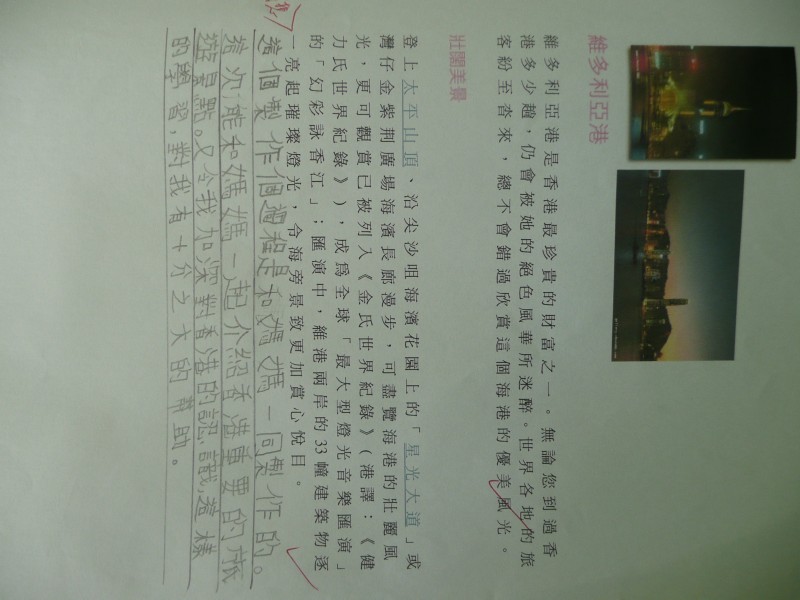 維多利亞港
維多利亞港是香港最珍貴的財富之一。無論您到過香
港多少趟,仍會被她的絕色風華所迷醉。世界各地的旅
客紛至沓來,總不會錯過欣賞這個海港的優美風光。
壯闊美景
登上太平山頂、沿尖沙咀海濱花園上的「星光大道」或
灣仔金紫荆廣場海濱長廊漫步,可盡覽海港的壯麗風
光,更可觀賞已被列入《金氏世界紀錄》(港譯:《健
力氏世界紀錄》),成為全球「最大型燈光音樂匯演」
的「幻彩詠香江」;匯演中,維港兩岸的33幢建築物逐
一亮起璀璨燈光,令海旁景致更加賞心悅目。
這個製作個過程是和媽媽一同製作的。
這次能和媽媽一起介紹香港重要的旅
遊景點。又令我加深對香港的認識,這樣
的學習,對我有十分之大的幫助。